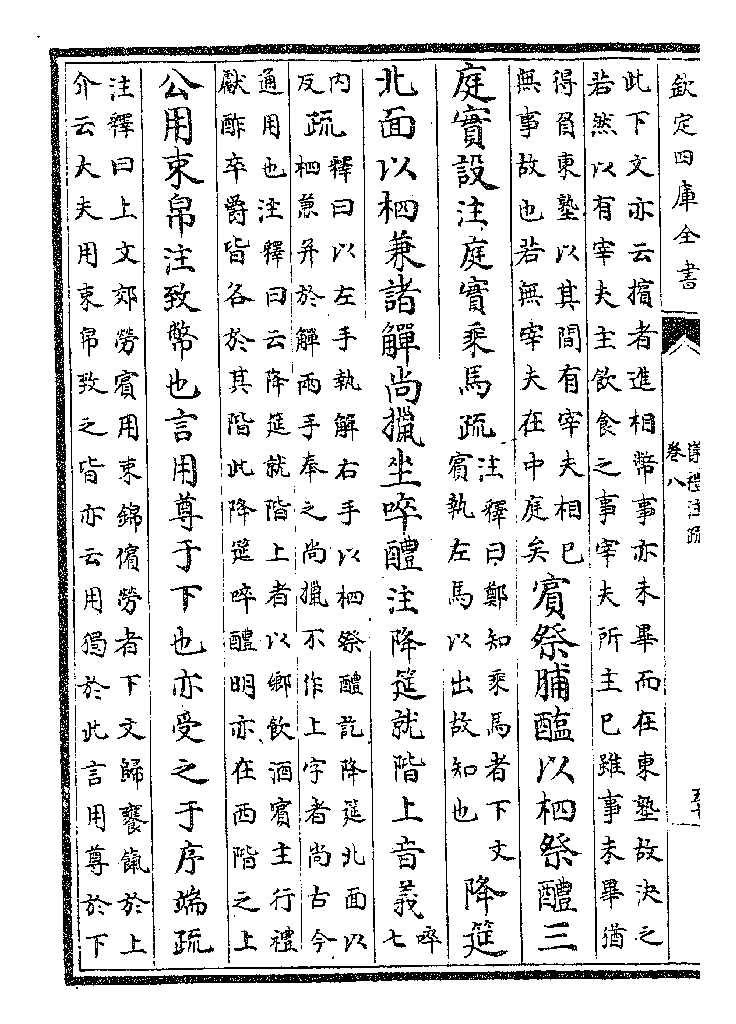 欽定四庫全書
儀禮注疏
卷八
此下文亦云擯者進相幣事亦未畢而在東塾故決之
若然以有宰夫主飲食之事宰夫所主已雖事未畢猶
得負東塾以其間有宰夫相已
無事故也若無宰夫在中庭矣
賓祭脯醢以柶祭醴三
庭實設注庭實乘馬疏
注釋曰鄭知乘馬者下文
賓執左馬以出故知也
降筵
北面以柶兼諸觶尚擸坐啐醴注降筵就階上音義
啐
七
内
反
疏
釋曰以左手執解右手以柶祭醴訖降筵北面以
柶兼并於觶兩手奉之尚擸不作上字者尚古今
通用也注釋曰云降筵就階上者以鄉飲酒賓主行禮
獻酢卒爵皆各於其階此降筵啐醴明亦在西階之上
公用束帛注致幣也言用尊于下也亦受之于序端疏
注釋曰上文郊勞賓用束錦儐勞者下文歸饔餼於上
介云大夫用束帛致之皆亦云用獨於此言用尊於下